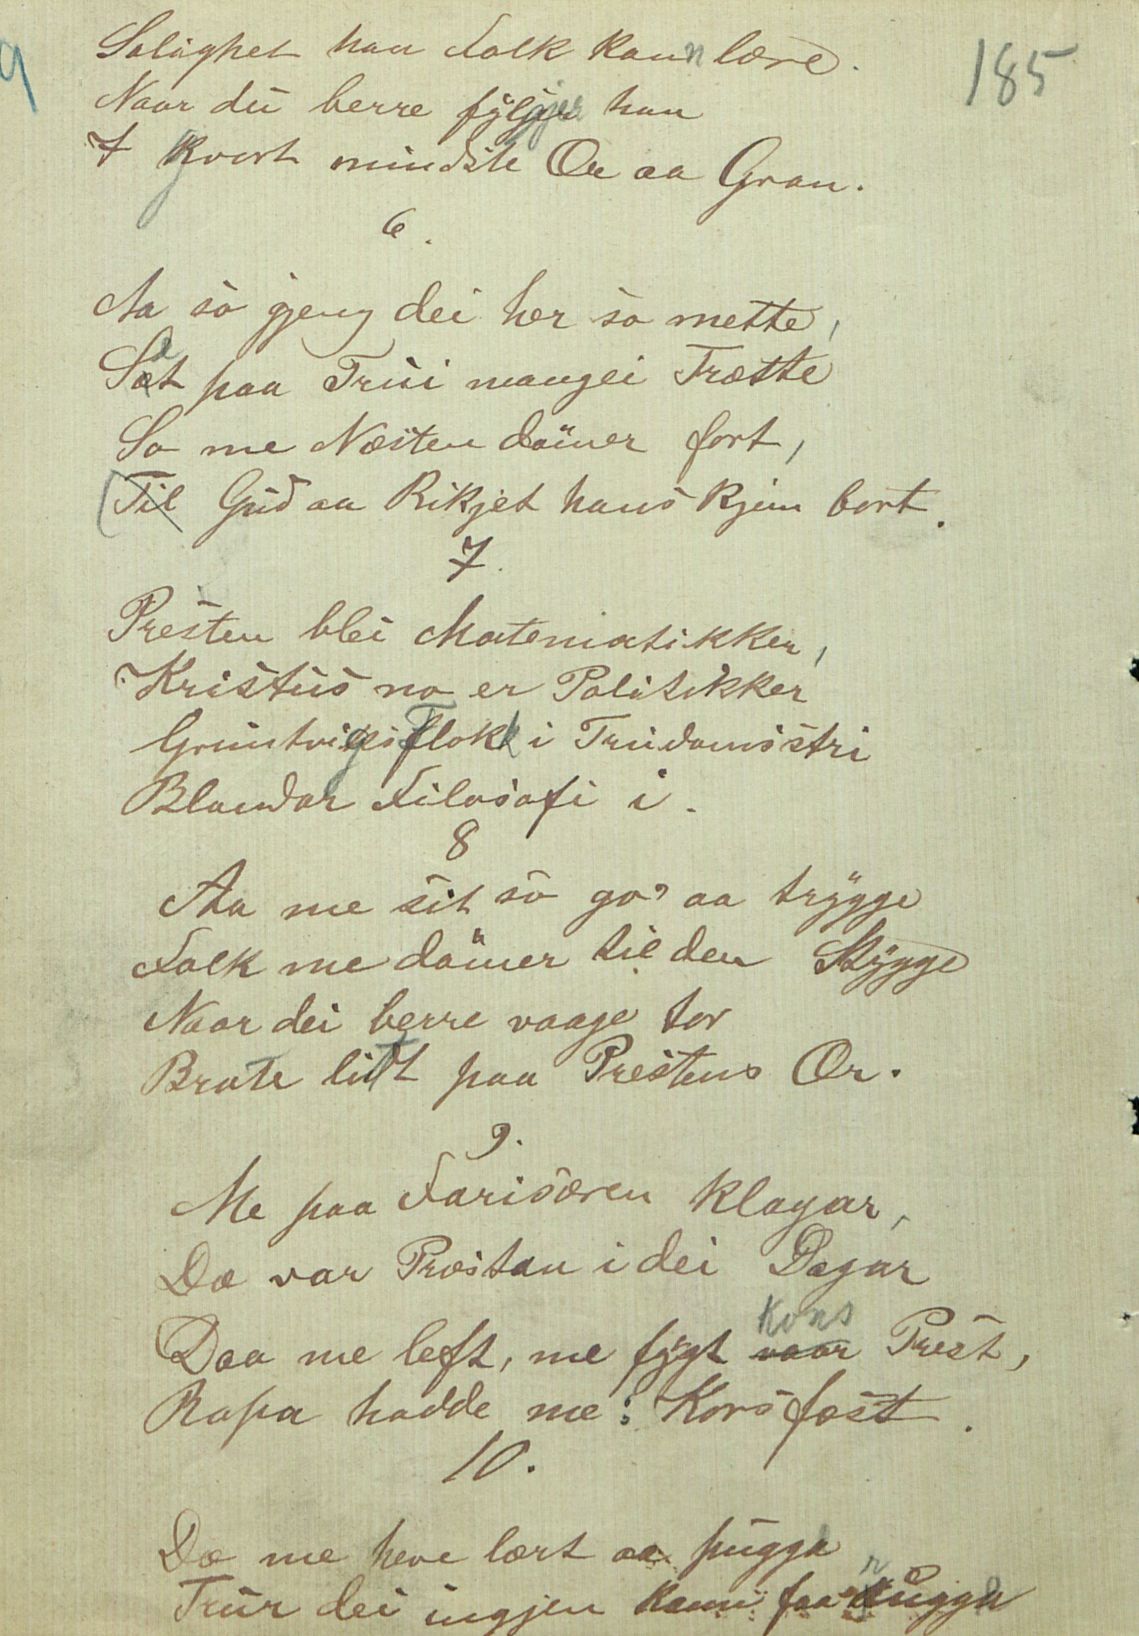 185
Salighet han Folk kann lære.
Naar du berre fylgjer han
I kvart mindste Or aa Gran.
6.
Aa so gjeng dei her so mette,
Sat paa Trui mangei Trætte
So me Næsten dömer fort,
Til Gud aa Rikjet hans kjem bort.
7.
Presten blei Matematikker,
Kristus no er Politikker
Gruntvigs Flokk i Trudomsstri
Blandar Filosofi i.
8
Aa me sit so go' aa trygge
Folk me dömer til den Stygge
Naar dei berre vaage tor
Brote litt paa Prestens Or.
9.
Me paa Farisæren klagar,
Dæ var Prestan i dei Dagar
Daa me left, me fygt vaar Kors Prest,
Ropa hadde me: Korsfæst.
10.
Dæ me heve lært aa pugga
Trur dei ingjen kann faa rugga